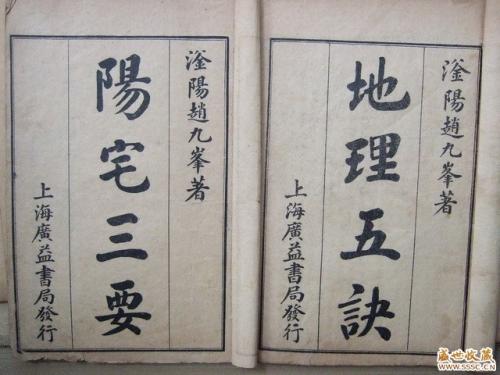 滏陽趙九峯著
地理五訣
上海廣益書局發行
滏陽趙九峯著
陽宅三要
上海廣益書局發行
盛世收藏
www.sssc.cn